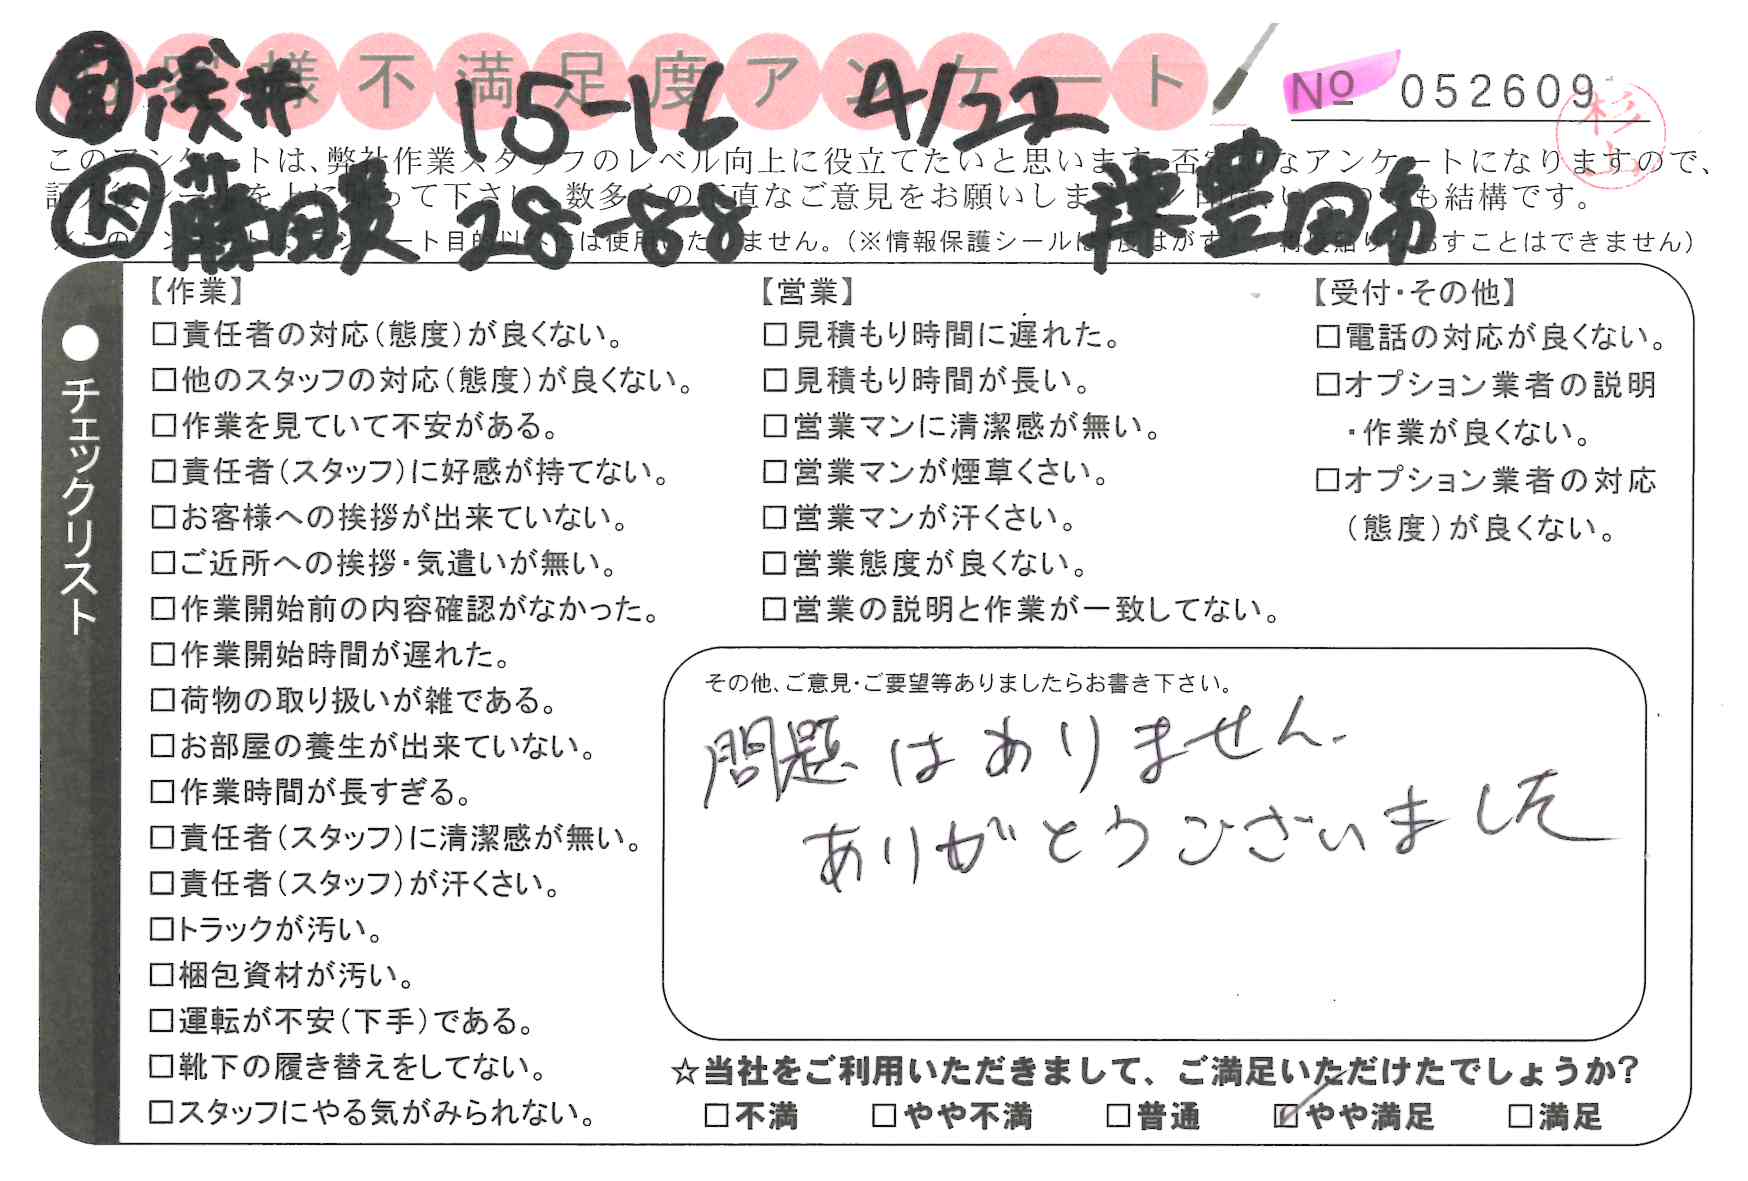 様不満足度アンケート
営 浅井 15-16 4/22
No 052609
杉山
このアンケートは、弊社作業スタッフのレベル向上に役立てたいと思います
なアンケートになりますので、
って下さい
数多くの
直なご意見をお願いしま
も結構です。
藤田 28-88 豊田市
は使用いたしません。(※情報保護シールは
すことはできません)
●チェックリスト
【作業】
□責任者の対応(態度)が良くない。
□他のスタッフの対応(態度)が良くない。
□作業を見ていて不安がある。
□責任者(スタッフ)に好感が持てない。
□お客様への挨拶が出来ていない。
□ご近所への挨拶・気遣いが無い。
□作業開始前の内容確認がなかった。
□作業開始時間が遅れた。
□荷物の取り扱いが雑である。
□お部屋の養生が出来ていない。
□作業時間が長すぎる。
□責任者(スタッフ)に清潔感が無い。
□責任者(スタッフ)が汗くさい。
□トラックが汚い。
□梱包資材が汚い。
□運転が不安(下手)である。
□靴下の履き替えをしてない。
□スタッフにやる気がみられない。
【営業】
□見積もり時間に遅れた。
□見積もり時間が長い。
□営業マンに清潔感が無い。
□営業マンが煙草くさい。
□営業マンが汗くさい。
□営業態度が良くない。
□営業の説明と作業が一致してない。
【受付・その他】
□電話の対応が良くない。
□オプション業者の説明
・作業が良くない。
□オプション業者の対応
(態度)が良くない。
その他、ご意見・ご要望等ありましたらお書き下さい。
問題はありません.
ありがとうございました
☆当社をご利用いただきまして、ご満足いただけたでしょうか?
□不満 □やや不満 □普通 ☑やや満足 □満足